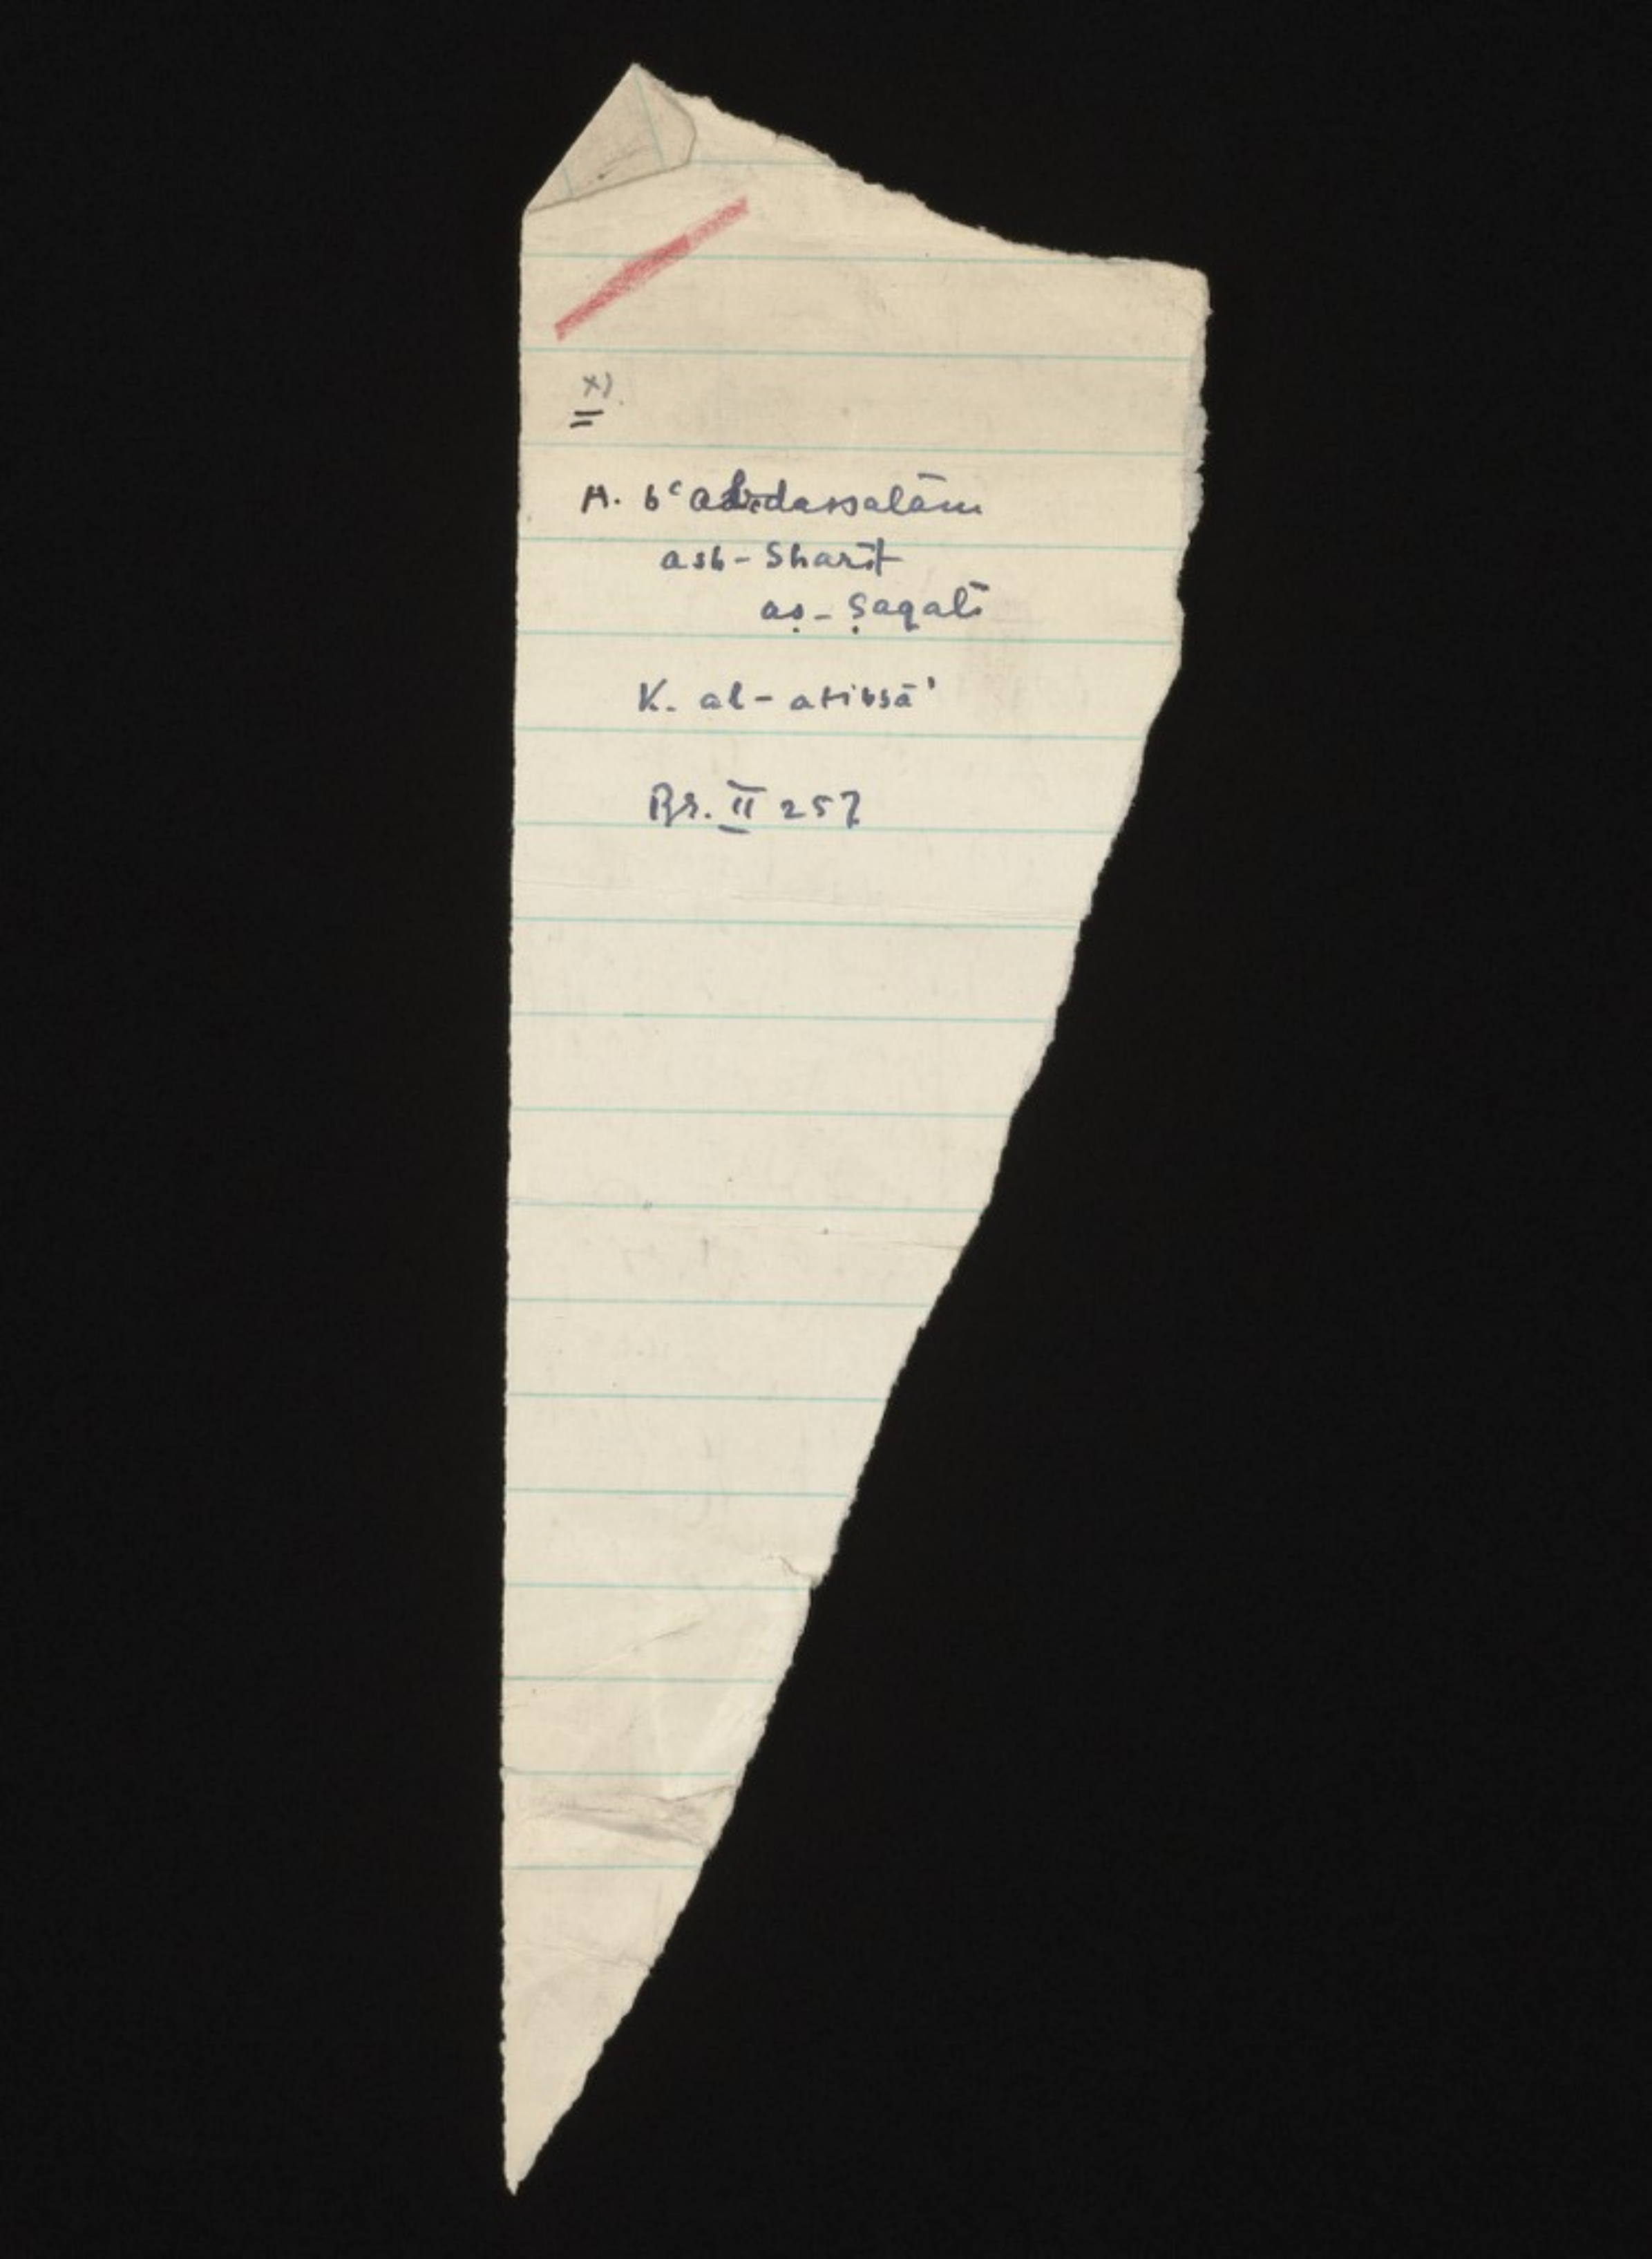 x)
A. b ʿabdassalām
ash-Sharīf
aṣ-Ṣaqalī
K. al-aṭibbā'
Br. II 257